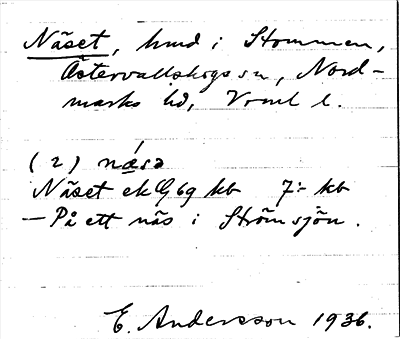 Näset, hmd i Stommen,
Östervallskogs sn, Nord-
marks hd, Vrml l.
(2) næ´sə
Näset ek G69 kb 7:- kb
— På ett näs i Strömsjön.
E. Andersson 1936.